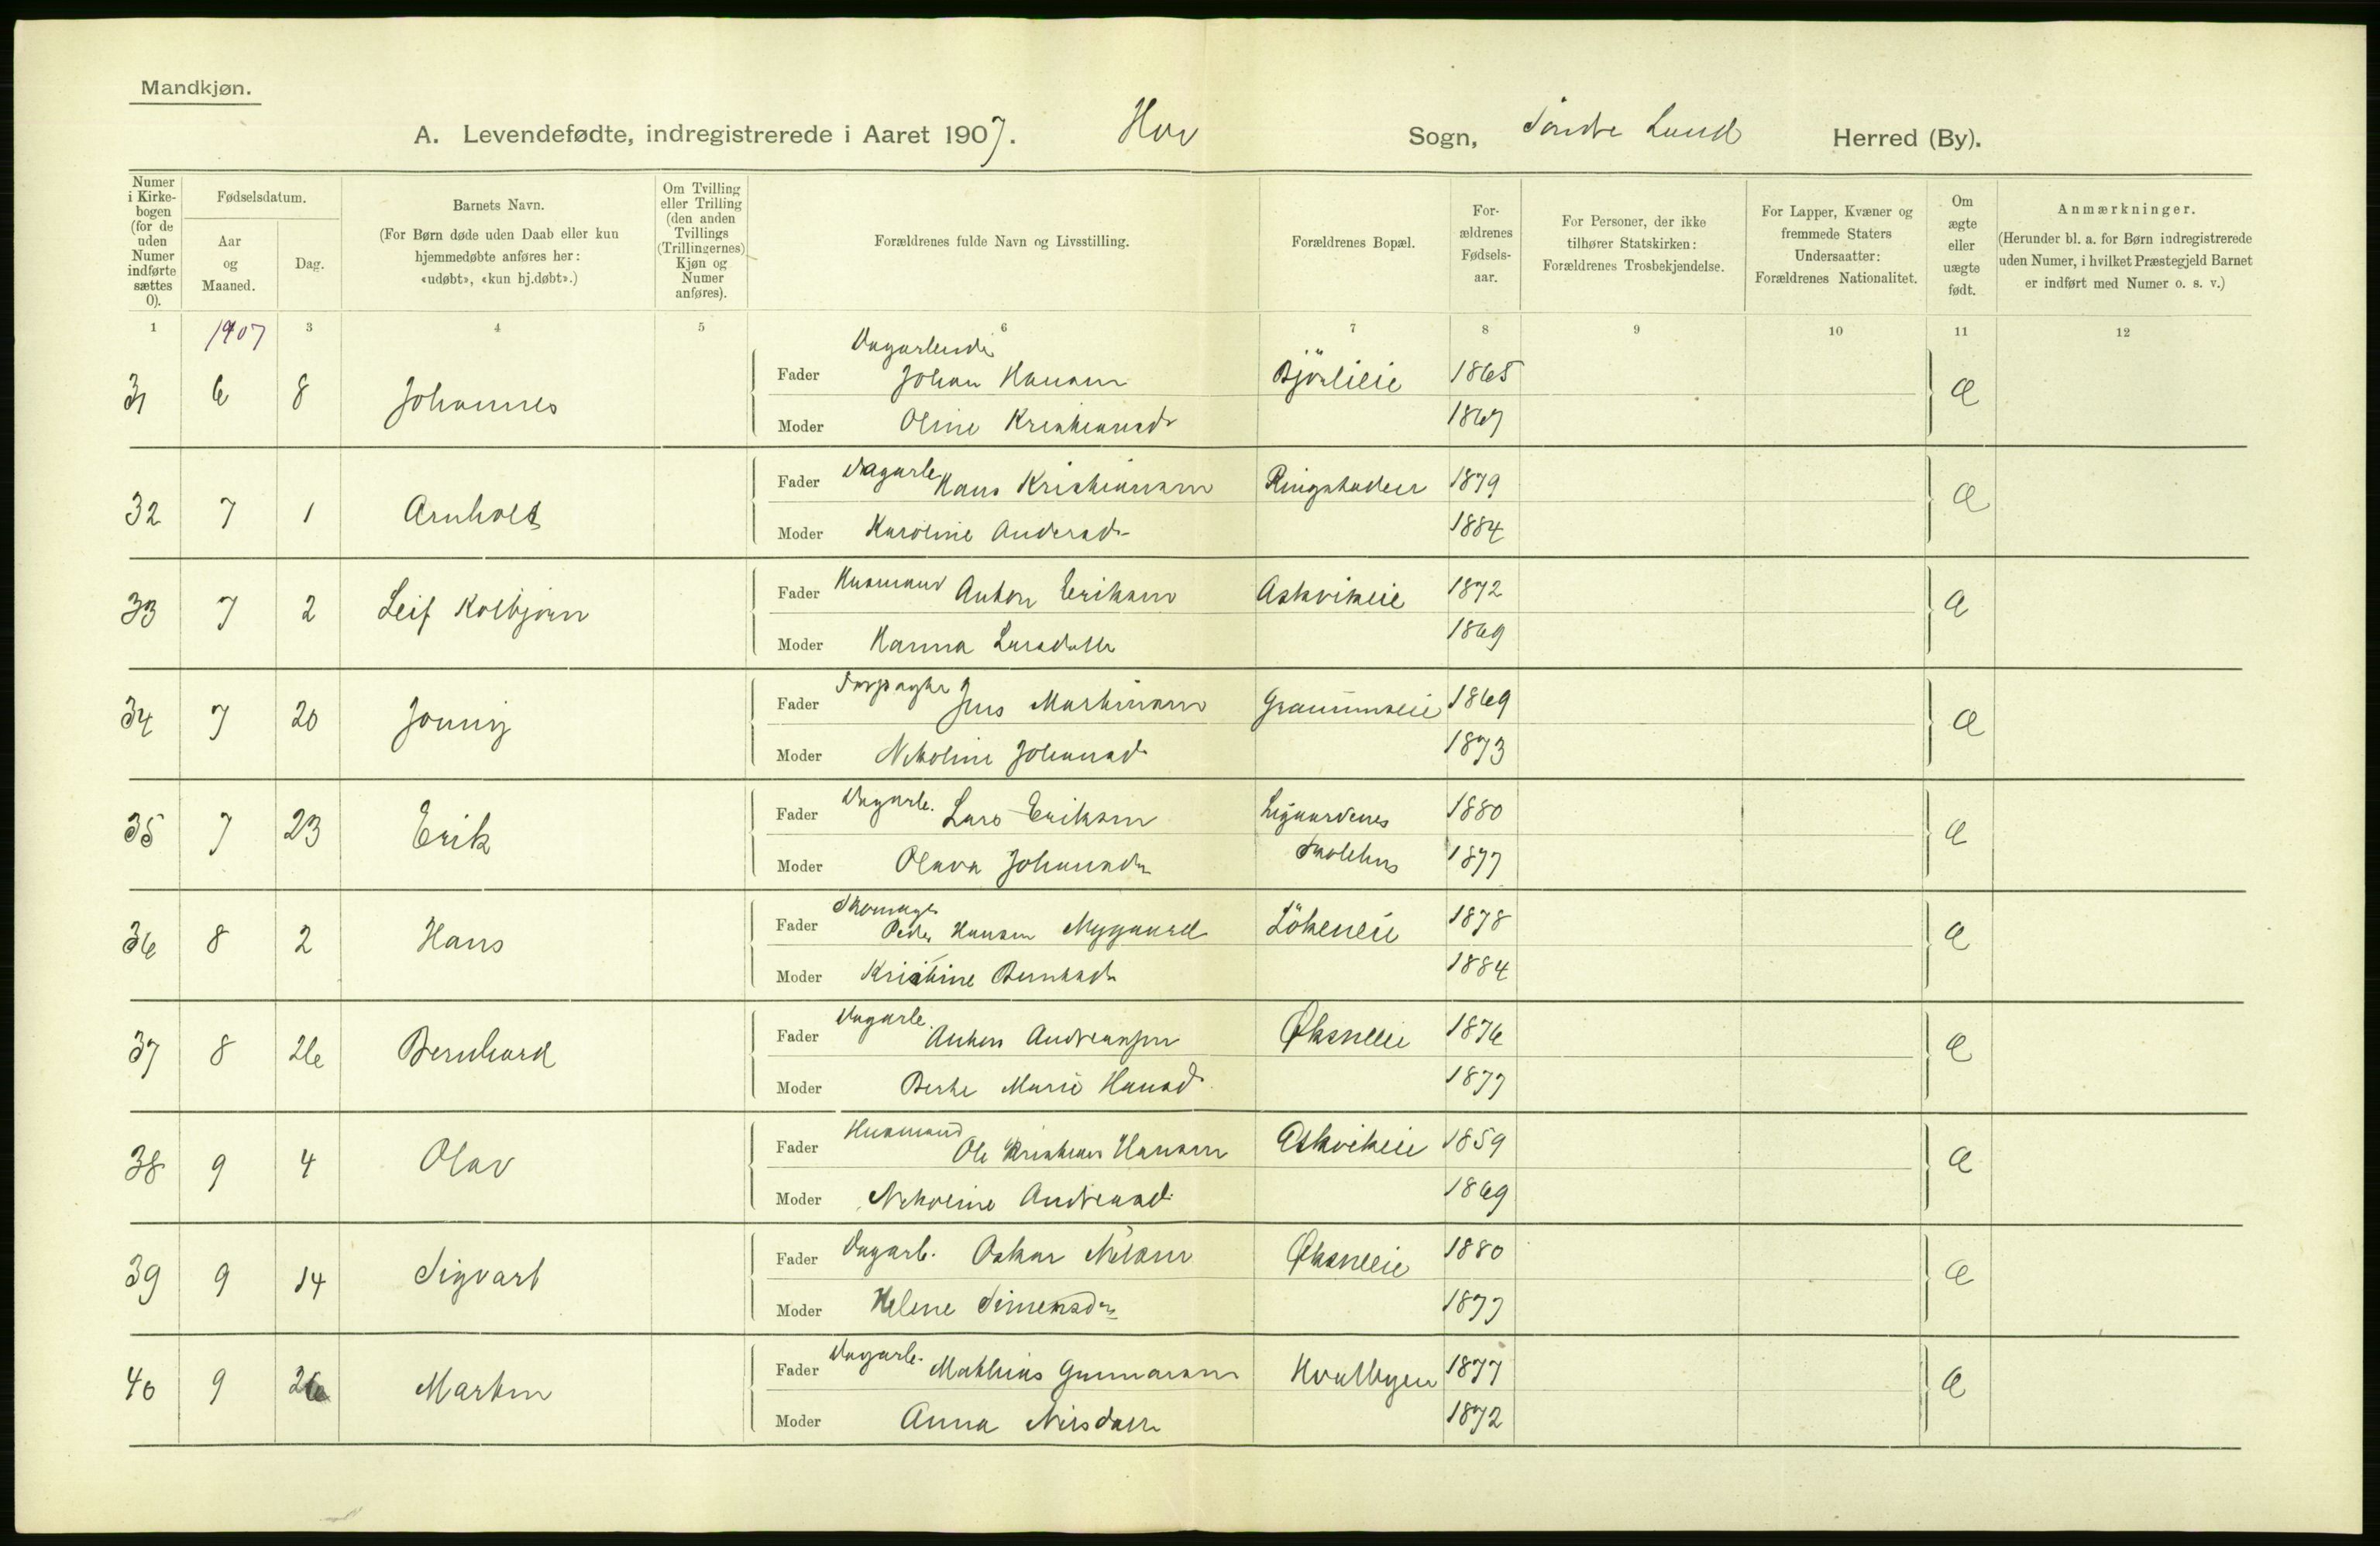 Mandkjøn.
A. Levendefødte, indregistrerede i Aaret 1907. Hov Sogn, Søndre Land Herred (By).
Numer i Kirke-bogen (for de uden Numer indførte sættes 0).
Fødselsdatum.
Aar og Maaned.
Dag.
Barnets Navn.
(For Børn døde uden Daab eller kun hjemmedøbte anføres her: «udøbt», «kun hj.døbt».)
Om Tvilling eller Trilling (den anden Tvillings (Trillingernes) Kjøn og Numer anføres).
Forældrenes fulde Navn og Livsstilling.
Forældrenes Bopæl.
For-ældrenes Fødsels-aar.
For Personer, der ikke tilhører Statskirken: Forældrenes Trosbekjendelse.
For Lapper, Kvæner og fremmede Staters Undersaatter: Forældrenes Nationalitet.
Om ægte eller uægte født.
Anmærkninger.
(Herunder bl. a. for Børn indregistrerede uden Numer, i hvilket Præstegjeld Barnet er indført med Numer o. s. v.)
1 1907 3 4 5 6 7 8 9 10 11 12
31 6 8 Johannes Fader Dagarbeider Johan Hansen Bjørlieie 1865 Æ
Moder Oline Kristiansd. 1867
32 7 1 Arnholt Fader Dagarb. Hans Kristiansen Ringstadeie 1879 Æ
Moder Karoline Andersd. 1884
33 7 2 Leif Kolbjørn Fader Husmand Anton Eriksen Askvikeie 1872 Æ
Moder Hanna Larsdatter 1869
34 7 20 Jonny Fader Jens Martinsen 1869 Æ
Moder Nikoline Johansd. 1873
35 7 23 Erik Fader Dagarb. Lars Eriksen 1880 Æ
Moder Olava Johansd. Skolehus 1877
36 8 2 Hans Fader Skomager Peder Hansen Nygaard Løkeneie 1878 Æ
Moder Kristine Berntsd. 1884
37 8 26 Bernhard Fader Dagarb. Anton Andreassen Øksneeie 1876 Æ
Moder Berte Marie Hansd. 1877
38 9 4 Olav Fader Husmand Ole Kristian Hansen Askvikeie 1859 Æ
Moder Nikoline Andreasd. 1869
39 9 14 Sigvart Fader Dagarb. Oskar Nilsen Øksneeie 1880 Æ
Moder Helene Simensdtr 1877
40 9 26 Martin Fader Dagarb. Mathias Gunnarsen Hvalbyeie 1877 Æ
Moder Anna Nilsdatr. 1872